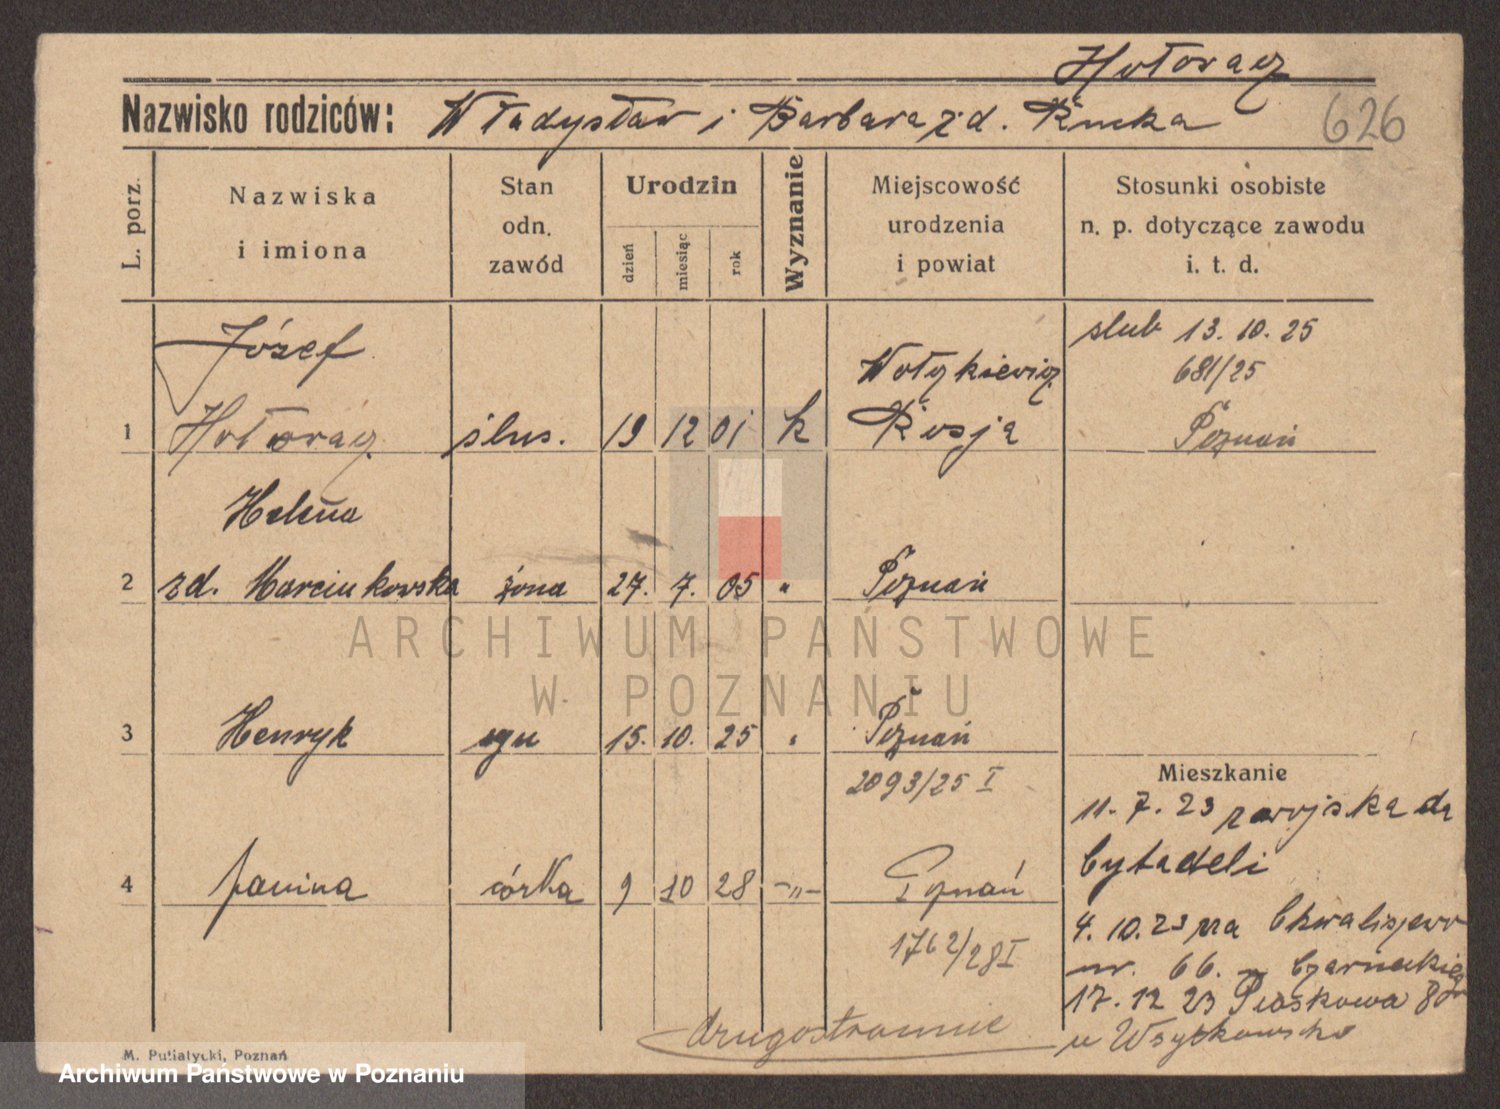 Hołoracz
Nazwisko rodziców: Władysław i Barbara zd. Rucka
626
L. porz.
Nazwiska
i imiona
Stan
odn.
zawód
Urodzin
dzień
miesiąc
rok
Wyznanie
Miejscowość
urodzenia
i powiat
Stosunki osobiste
n. p. dotyczące zawodu
i. t. d.
Józef
slub 13. 10. 25
681/25
1 ślus. 19 12 01 k Rosja Poznań
Helena
2 zd. Marcinkowska żona 27. 7. 05 " Poznań
ARCHIWUM PAŃSTWOWE
W POZNANIU
3 Henryk syn 15. 10. 25 " Poznań
2093/25 I
4 Janina córka 9 10 28 -"- Poznań
1762/28 I
Mieszkanie
11. 7. 23 z wojska
Cytadeli
4. 10. 23 na Chwaliszewo
nr. 66. Czarnecki
17. 12 23 Piaskowa 8
u
drugostronnie
M. Putiatycki, Poznań
Archiwum Państwowe w Poznaniu